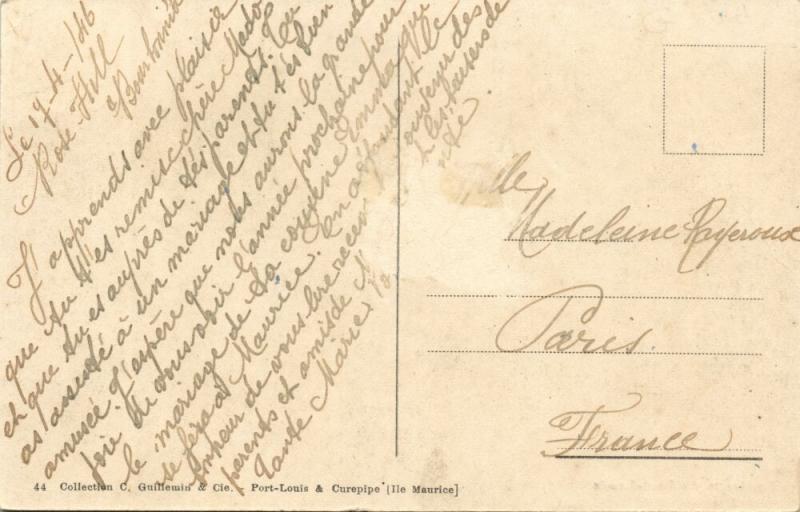 Le 17-4-/46
Rose-Hill
Bourbonnie
J'apprends avec plaisir
que tu t'es remise chère Mado
et que tu es auprès de tes parents. Tu
as assisté à un mariage et tu t'es bien
amusée. J'espère que nous aurons la grande
joie de vous voir l'année prochaine pour
le mariage de ta cousine Emma qui
se fera à Maurice. En attendant le
de vous lire souvenir des
parents et amis de M les baisers de
Tante Marie
Mlle
Madeleine Payeroux
Paris
France
44 Collection C. Guillemin & Cie. - Port-Louis & Curepipe [Ile Maurice]